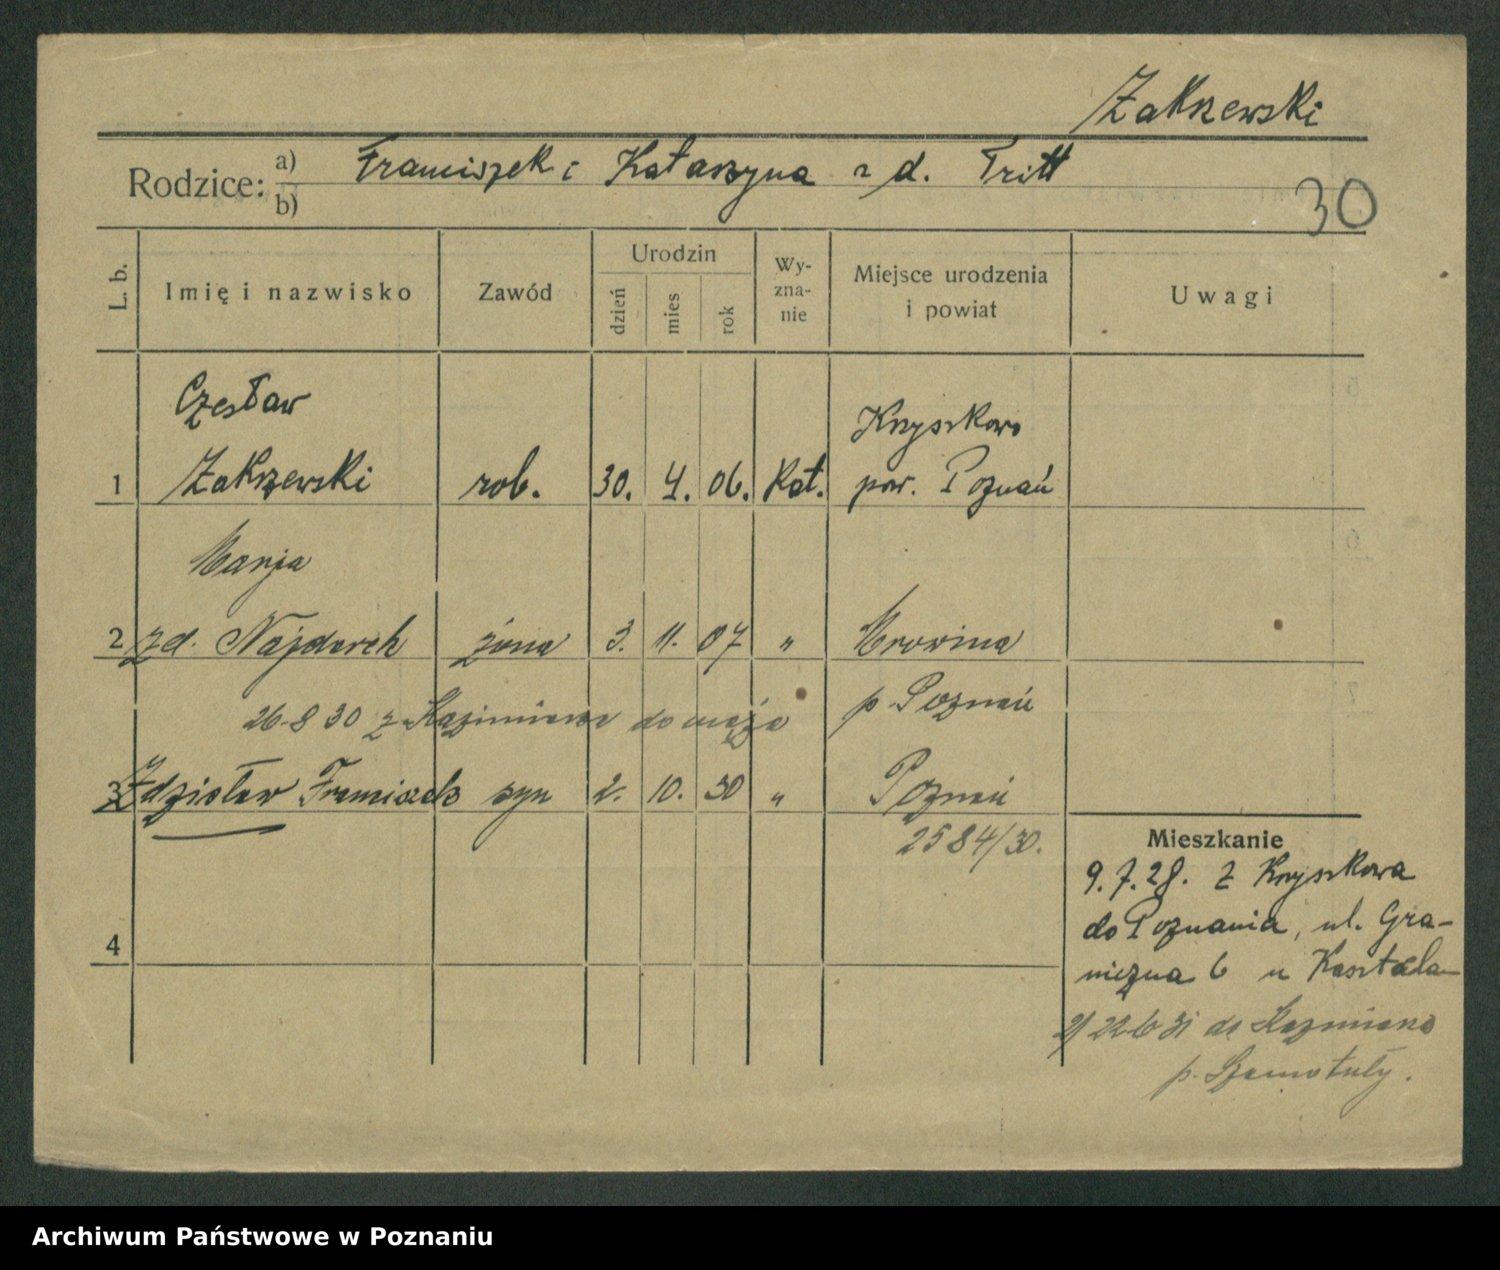 Zakrzewski
Rodzice: a) Franciszek i Katarzyna z d. Tritt
b)
30
L. b.
Imię i nazwisko
Zawód
Urodzin
dzień
mies
rok
Wy-
zna-
nie
Miejsce urodzenia
i powiat
Uwagi
Czesław Krzyszkowo
1 Zakrzewski rob. 30. 4. 06. Kat. pow. Poznań
Marja
2 zd. Najderek żona 3. 11. 07 " Mrowina
26-8 30 z Kazimierza do męża p Poznań
3 Zdzisław Franciszek syn 2. 10. 30 " Poznań
2584/30.
Mieszkanie
9.7.28. z Krzyszkowa
do Poznania, ul. Gra-
4
niczna 6 u Kasztela
2/ 22 6 31 do Kazmierz
p. Szamotuły.
Archiwum Państwowe w Poznaniu